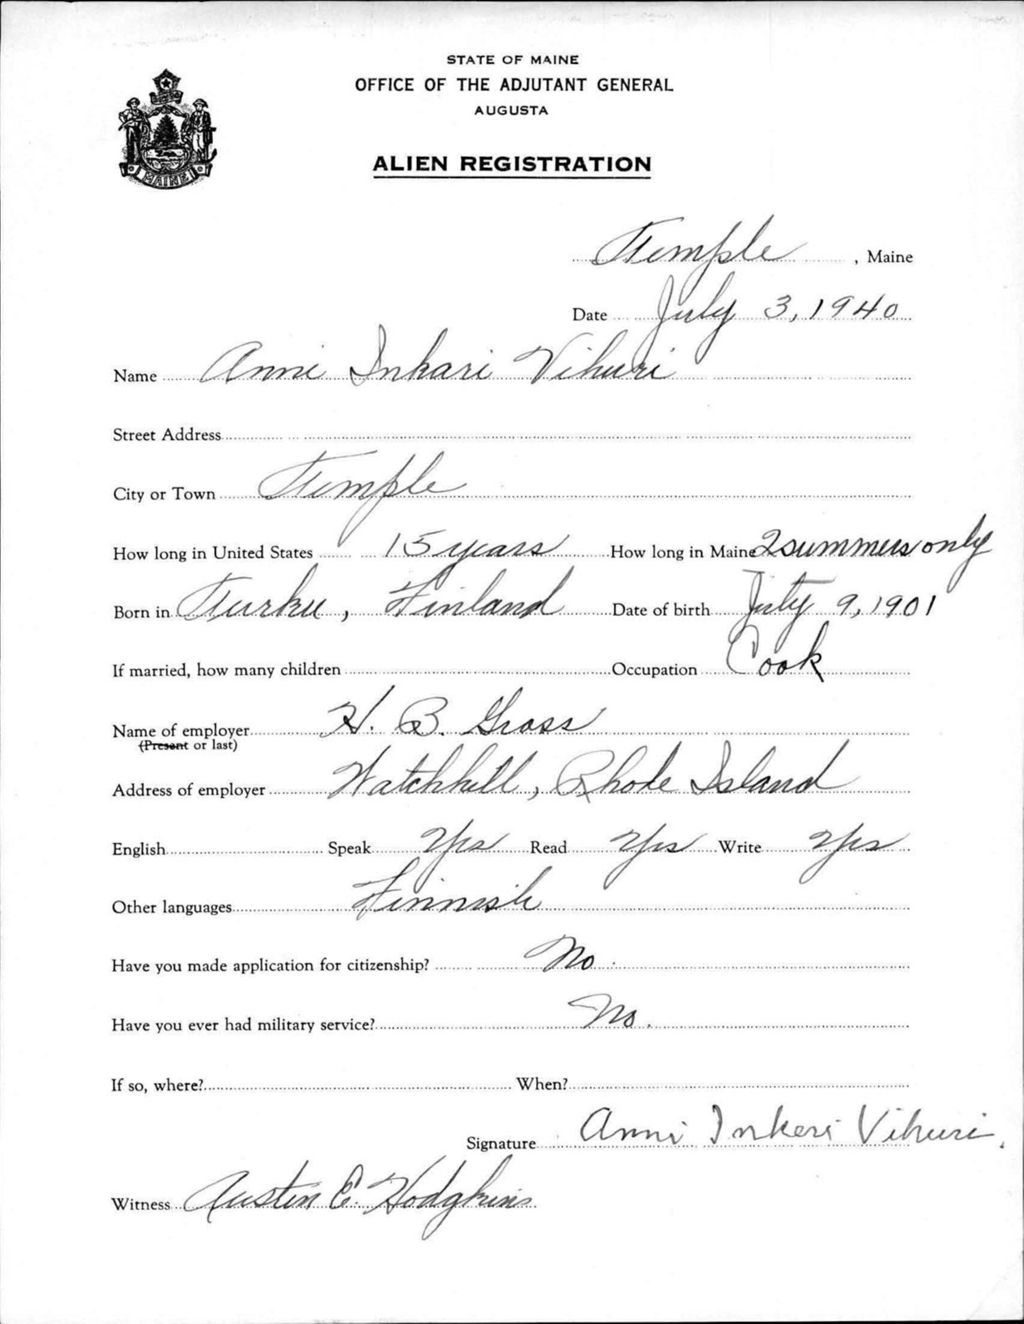 STATE OF MAINE
OFFICE OF THE ADJUTANT GENERAL
AUGUSTA
ALIEN REGISTRATION
MAINE
Temple, Maine
Date July 3, 1940
Name Anni Inkari Vihuri
Street Address
City or Town Temple
How long in United States 15 years How long in Maine 2 summers only
Born in Turku, Finland Date of birth July 9, 1901
If married, how many children Occupation Cook
Name of employer H. B. Gross
(Present or last)
Address of employer Watchhill, Rhode Island
English Speak Yes Read Yes Write Yes
Other languages Finnish
Have you made application for citizenship? No.
Have you ever had military service? No.
If so, where? When?
Signature Anni Inkeri Vihuri.
Witness Austin E. Hodgkins